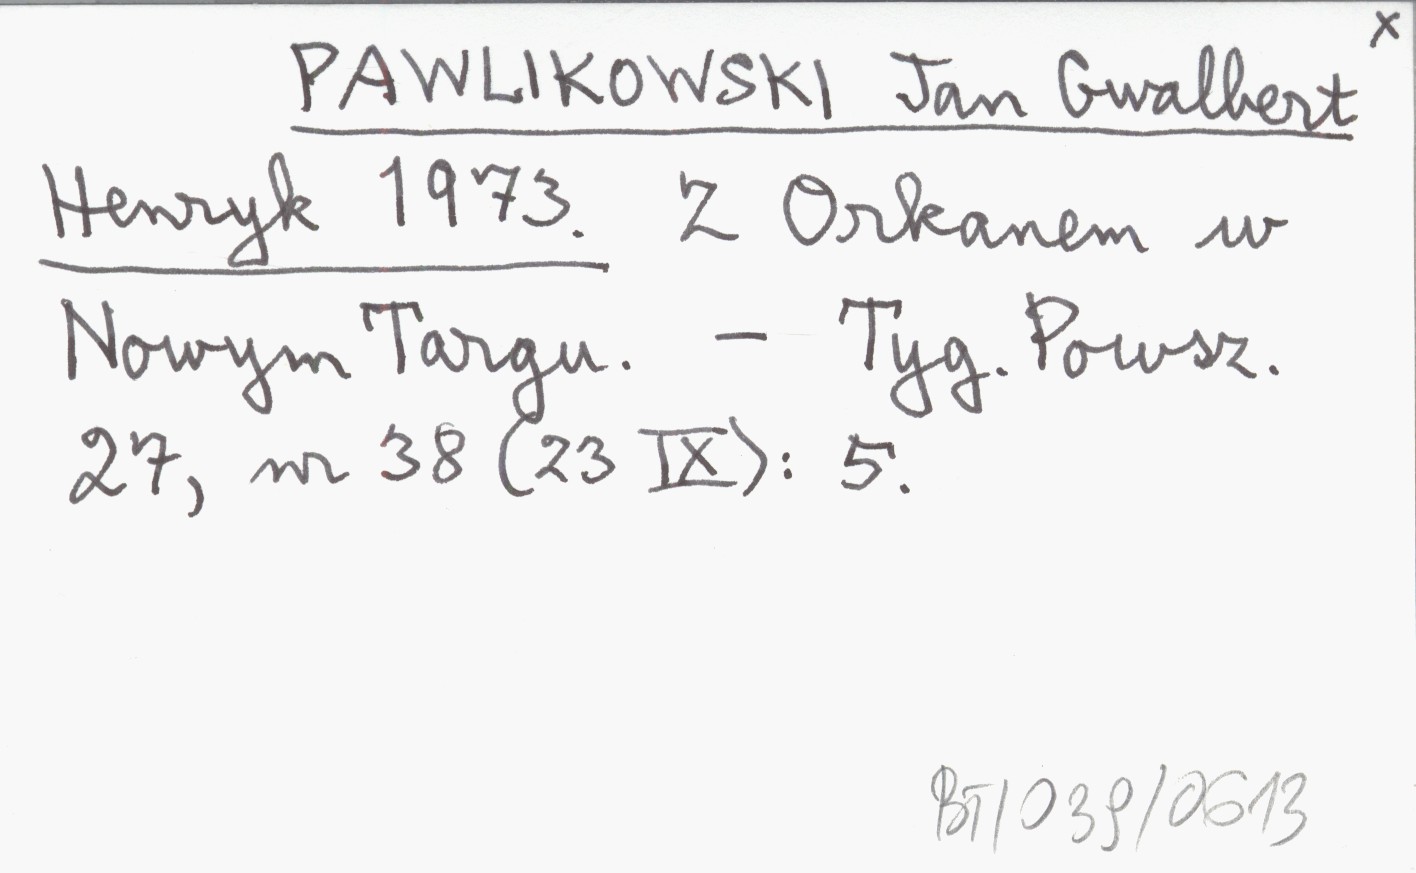 x
PAWLIKOWSKI Jan Gwalbert
Henryk 1973. Z Orkanem w
Nowym Targu. – Tyg. Powsz.
27, nr 38 (23 IX): 5.
BT/039/0613